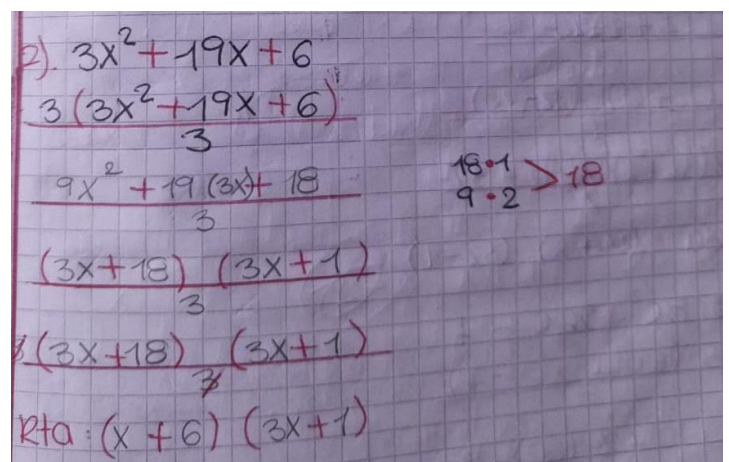 2). 3x² + 19x + 6
3(3x² + 19x + 6)
3
9x² + 19(3x) + 18
3
18 • 1
9 • 2
> 18
(3x + 18) (3x + 1)
3
3(3x + 18) (3x + 1)
3
Rta: (x + 6) (3x + 1)